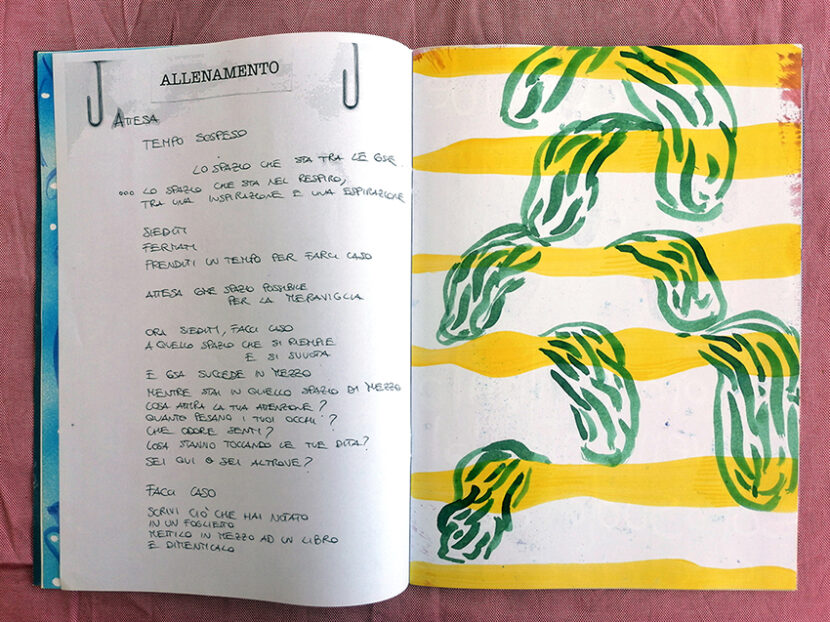 ALLENAMENTO
ATTESA
TEMPO SOSPESO
LO SPAZIO CHE STA TRA LE COSE..
... LO SPAZIO CHE STA NEL RESPIRO,
TRA UNA INSPIRAZIONE E UNA ESPIRAZIONE
SIEDITI
FERMATI
PRENDITI UN TEMPO PER FARCI CASO
ATTESA COME SPAZIO POSSIBILE
PER LA MERAVIGLIA
ORA SIEDITI, FACCI CASO
A QUELLO SPAZIO CHE SI RIEMPIE
E SI SVUOTA
E COSA SUCCEDE IN MEZZO
MENTRE STAI IN QUELLO SPAZIO DI MEZZO
COSA ATTIRA LA TUA ATTENZIONE?
QUANTO PESANO I TUOI OCCHI?
CHE ODORE SENTI?
COSA STANNO TOCCANDO LE TUE DITA?
SEI QUI O SEI ALTROVE?
FACCI CASO
SCRIVI CIÒ CHE HAI NOTATO
IN UN FOGLIETTO
METTILO IN MEZZO AD UN LIBRO
E DIMENTICALO